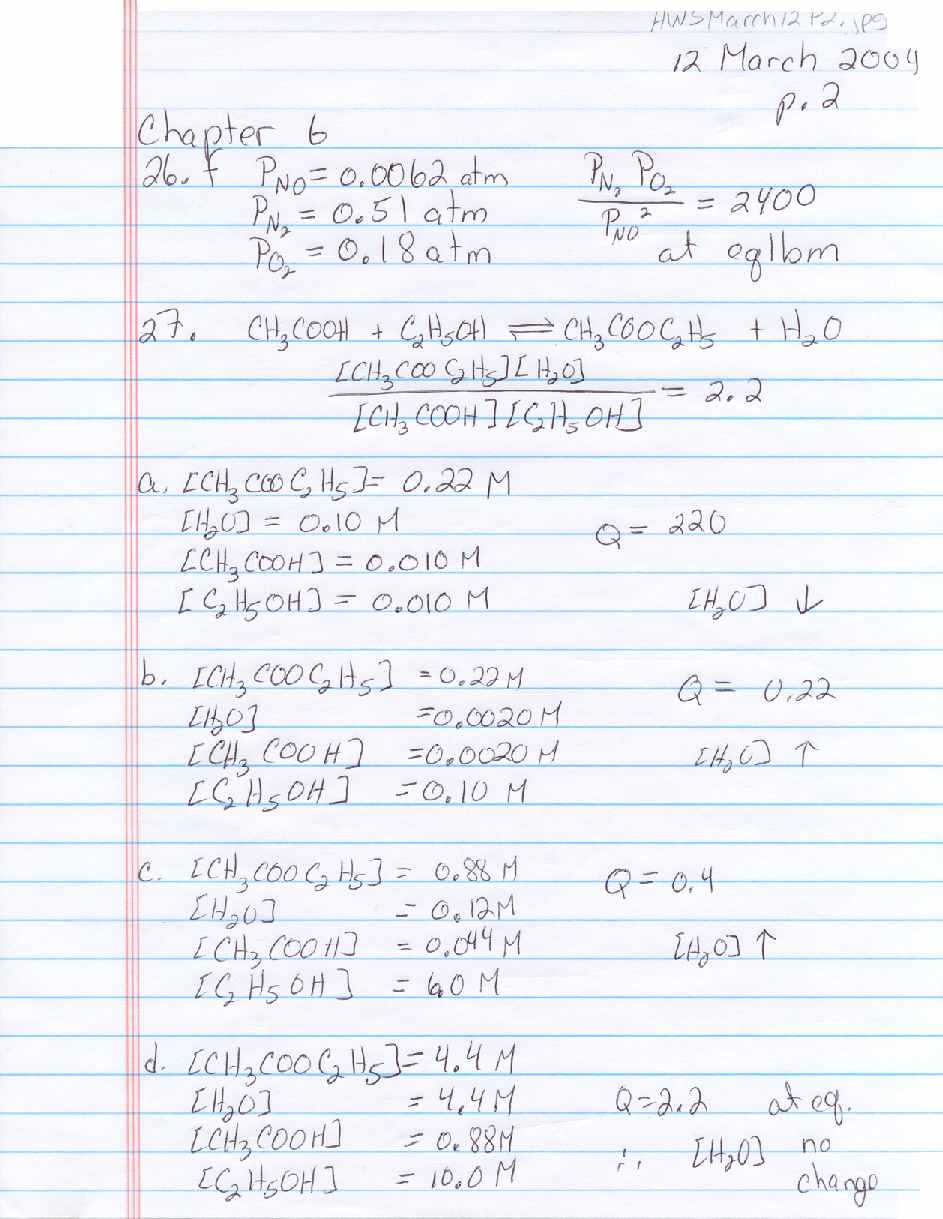 HWSMarch12P2.jpg
12 March 2004
p. 2
Chapter 6
26. f P_NO = 0.0062 atm
P_N₂ = 0.51 atm
P_O₂ = 0.18 atm
P_N₂ P_O₂ / P_NO² = 2400
at eqlbm
27. CH₃COOH + C₂H₅OH ⇌ CH₃COOC₂H₅ + H₂O
[CH₃COOC₂H₅][H₂O] / [CH₃COOH][C₂H₅OH] = 2.2
a. [CH₃COOC₂H₅] = 0.22 M
[H₂O] = 0.10 M Q = 220
[CH₃COOH] = 0.010 M
[C₂H₅OH] = 0.010 M [H₂O] ↓
b. [CH₃COOC₂H₅] = 0.22 M Q = 0.22
[H₂O] = 0.0020 M
[CH₃COOH] = 0.0020 M [H₂O] ↑
[C₂H₅OH] = 0.10 M
c. [CH₃COOC₂H₅] = 0.88 M Q = 0.4
[H₂O] = 0.12 M
[CH₃COOH] = 0.044 M [H₂O] ↑
[C₂H₅OH] = 6.0 M
d. [CH₃COOC₂H₅] = 4.4 M
[H₂O] = 4.4 M Q = 2.2 at eq.
[CH₃COOH] = 0.88 M ∴ [H₂O] no
[C₂H₅OH] = 10.0 M change